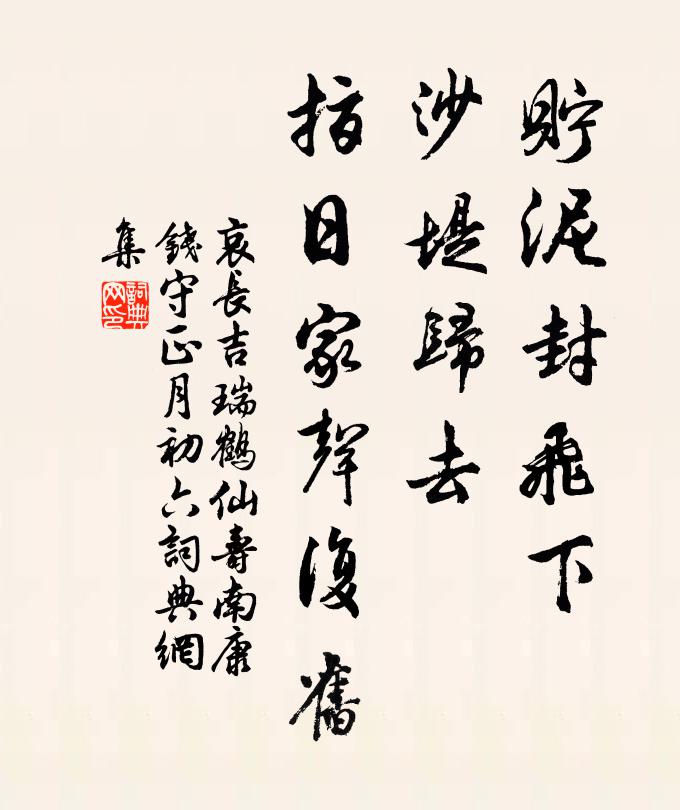 貯泥封飛下
沙堤歸去
指日家聲復舊
哀長吉瑞鶴仙壽南康
錢守正月初六詞典網
集
詞典
网印